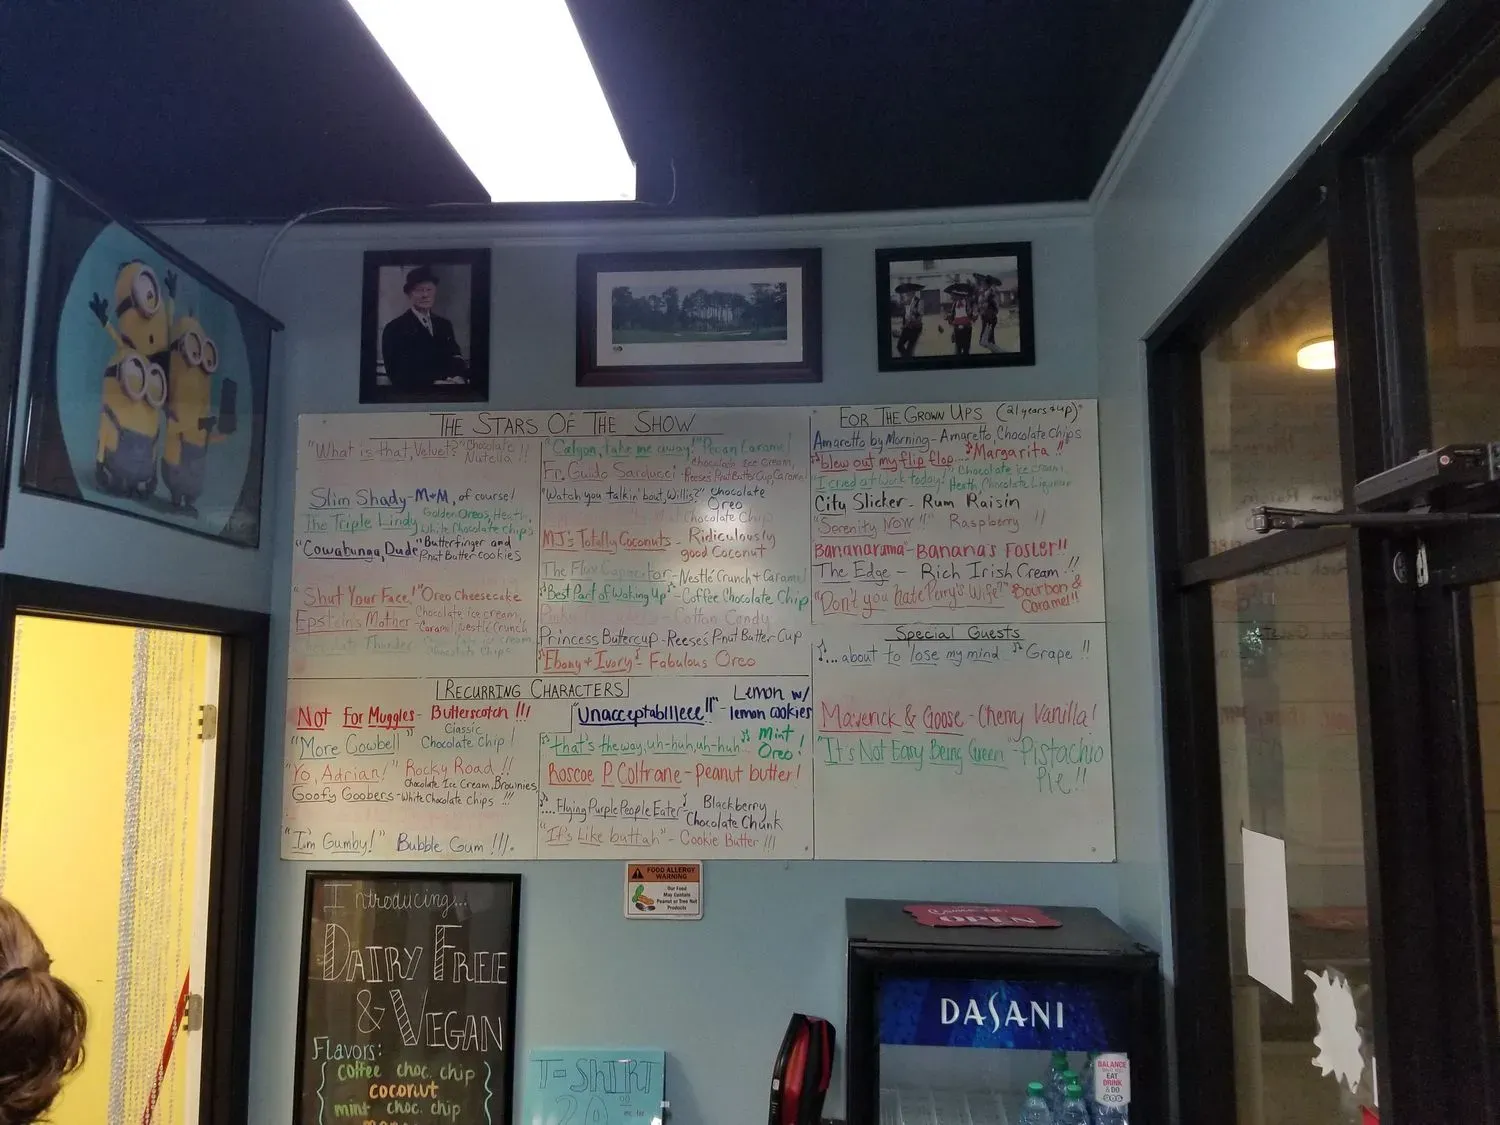 THE STARS OF THE SHOW
"What is that, Velvet?" Chocolate
Nutella !!
Slim Shady - M+M, of course!
The Triple Lindy Golden Oreos, Heath,
White Chocolate Chips
"Cowabunga, Dude" Butterfinger and
Pnut Butter cookies
"Shut Your Face!" Oreo Cheesecake
Epstein's Mother - Chocolate ice cream,
Caramel, Nestlé Crunch
Chocolate Thunder
Chocolate Chips
"Calgon, take me away!" Pecan Caramel
Fr. Guido Sarducci Chocolate Ice Cream,
Reeses Pnut Butter Cup, Caramel
"Watch you talkin' bout, Willis?" Chocolate
Oreo
Chocolate Chip
MJ's Totally Coconuts - Ridiculously
good Coconut
The Flux Capacitor - Nestlé Crunch + Caramel
"Best Part of Woking Up" - Coffee Chocolate Chip
Cotton Candy
Princess Buttercup - Reese's Pnut Butter Cup
"Ebony + Ivory" - Fabulous Oreo
FOR THE GROWN UPS (21 years & up)
Amaretto by Morning - Amaretto, Chocolate Chips
"blew out my flip flop... Margarita !!
"I cried at work today" Chocolate ice cream,
Heath, Chocolate Liqueur
City Slicker - Rum Raisin
"Serenity Now!!" Raspberry !!
Bananarama" - Bananas Foster!!
The Edge - Rich Irish Cream !!
"Don't you hate Perry's Wife?" Bourbon &
Caramel!!
Special Guests
"...about to lose my mind Grape !!
Maverick & Goose - Cherry Vanilla!
"It's Not Easy Being Green" - Pistachio
Pie !!
RECURRING CHARACTERS
Not For Muggles - Butterscotch !!!
"More Cowbell" Classic
Chocolate Chip!
"Yo, Adrian!" Rocky Road !!
Goofy Goobers - Chocolate Ice Cream, Brownies,
White Chocolate chips !!!
"I'm Gumby!" Bubble Gum !!!.
"Unacceptablllleee!!" - Lemon w/
lemon cookies
that's the way, uh-huh, uh-huh... Mint
Oreo!
Roscoe P. Coltrane - Peanut butter!
....Flying Purple People Eater - Blackberry
Chocolate Chunk
"It's Like buttah" - Cookie Butter !!!
FOOD ALLERGY
WARNING
Our Food
May Contain
Peanut or Tree Nut
Products
Introducing...
DAIRY FREE
& VEGAN
Flavors:
coffee choc. chip
coconut
mint choc. chip
T-SHIRT
20
Come in
OPEN
DASANI
BALANCE
EAT
DRINK
& DO